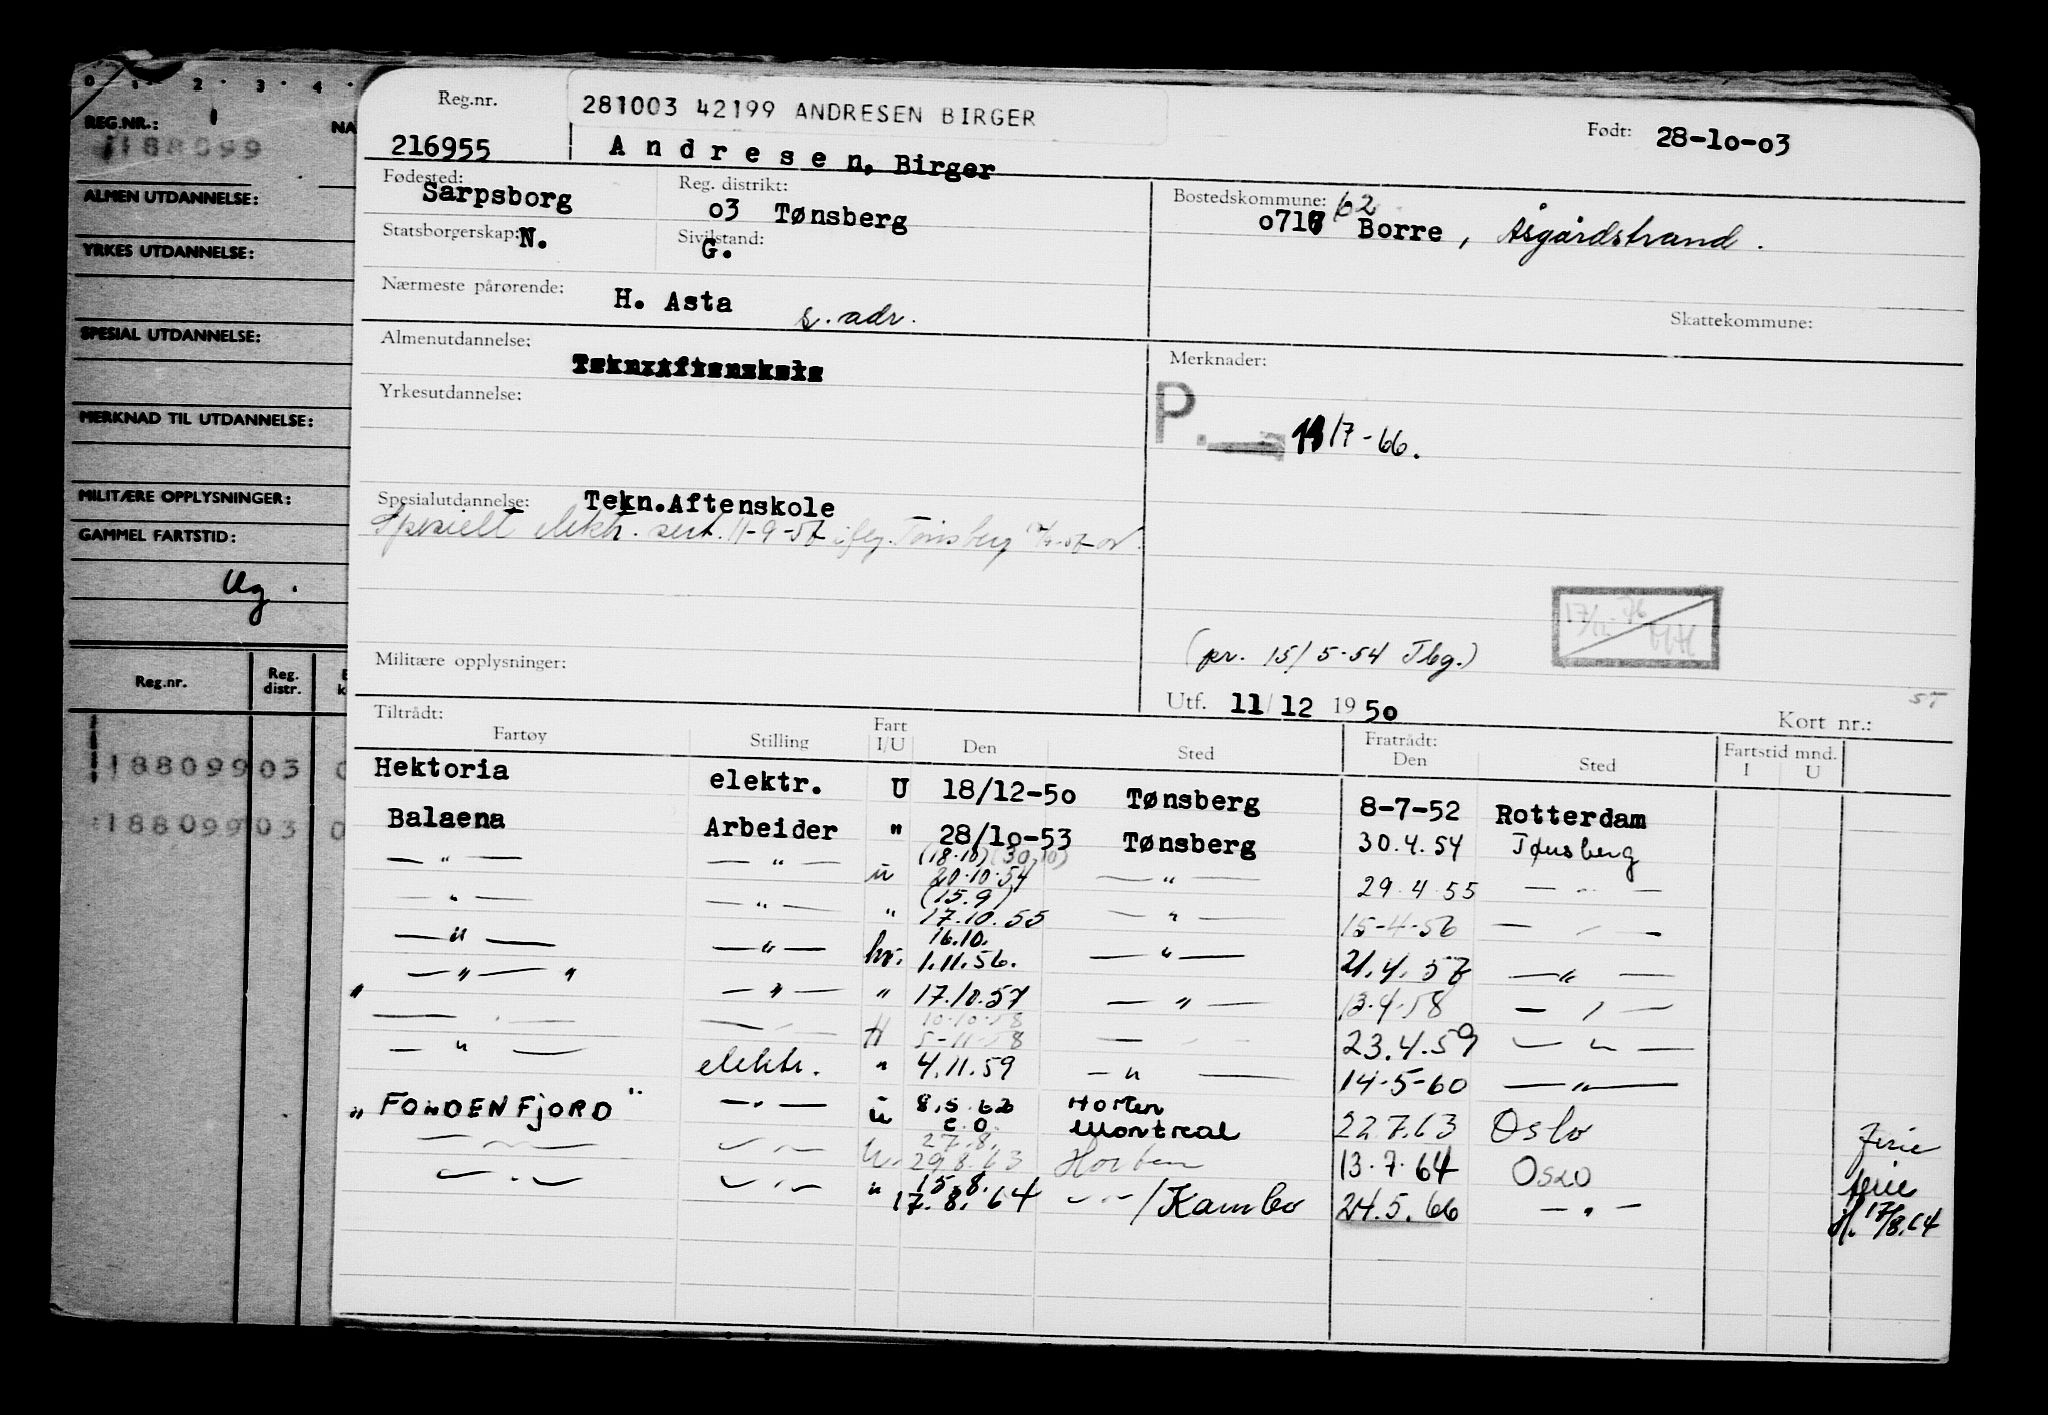 0 1 2 3 4
REG.NR.:
188099
NA
ALMEN UTDANNELSE:
YRKES UTDANNELSE:
SPESIAL UTDANNELSE:
MERKNAD TIL UTDANNELSE:
MILITÆRE OPPLYSNINGER:
GAMMEL FARTSTID:
Ug.
Reg.nr. Reg. distr.
188099 03 0
188099 03 0
Reg.nr. 281003 42199 ANDRESEN BIRGER Født: 28-10-03
216955 Andresen, Birger
Fødested: Sarpsborg Reg. distrikt: 03 Tønsberg Bostedskommune: 02 Borre, Åsgårdstrand.
Statsborgerskap: N. Sivilstand: G.
Nærmeste pårørende: H. Asta s. adr.
Skattekommune:
Almenutdannelse: Tekn.Aftenskole
Merknader:
Yrkesutdannelse:
P. 7-66.
Spesialutdannelse: Tekn.Aftenskole
Spesielt elektr. sert. 11-9-57 iflg. Tønsberg
(pr. 15/5-54 Tbg.)
Militære opplysninger:
Utf. 11/12 1950
Kort nr.:
Tiltrådt: Fratrådt: Fartstid mnd.
Fartøy Stilling Fart I/U Den Sted Den Sted I U
Hektoria elektr. U 18/12-50 Tønsberg 8-7-52 Rotterdam
Balaena Arbeider " 28/10-53 Tønsberg 30.4.54 Tønsberg
(18.10) (30.10)
— " — — " — u 20.10.54 — " — 29.4.55 — " —
(15.9)
— " — — " — " 17.10.55 — " — 15-4-56 — " —
16.10.
— " — — " — hv. 1.11.56. — " — 21.4.57 — " —
— " — " — " — " 17.10.57 — " — 13.4.58 — " —
10.10.58
— " — — " — H 5-11-58 — " — 23.4.59 — " —
— " — elektr. " 4.11.59 — " — 14-5-60 — " —
"FORDENFJORD" — " — u 8.5.62 Horten
Montreal 22.7.63 Oslo Ferie
27.8.
— " — — " — U. 29.8.63 Horten 13.7.64 Oslo ferie
15.8.
— " — — " — " 17.8.64 — " — / Kambo 24.5.66 — " — 17/8.64